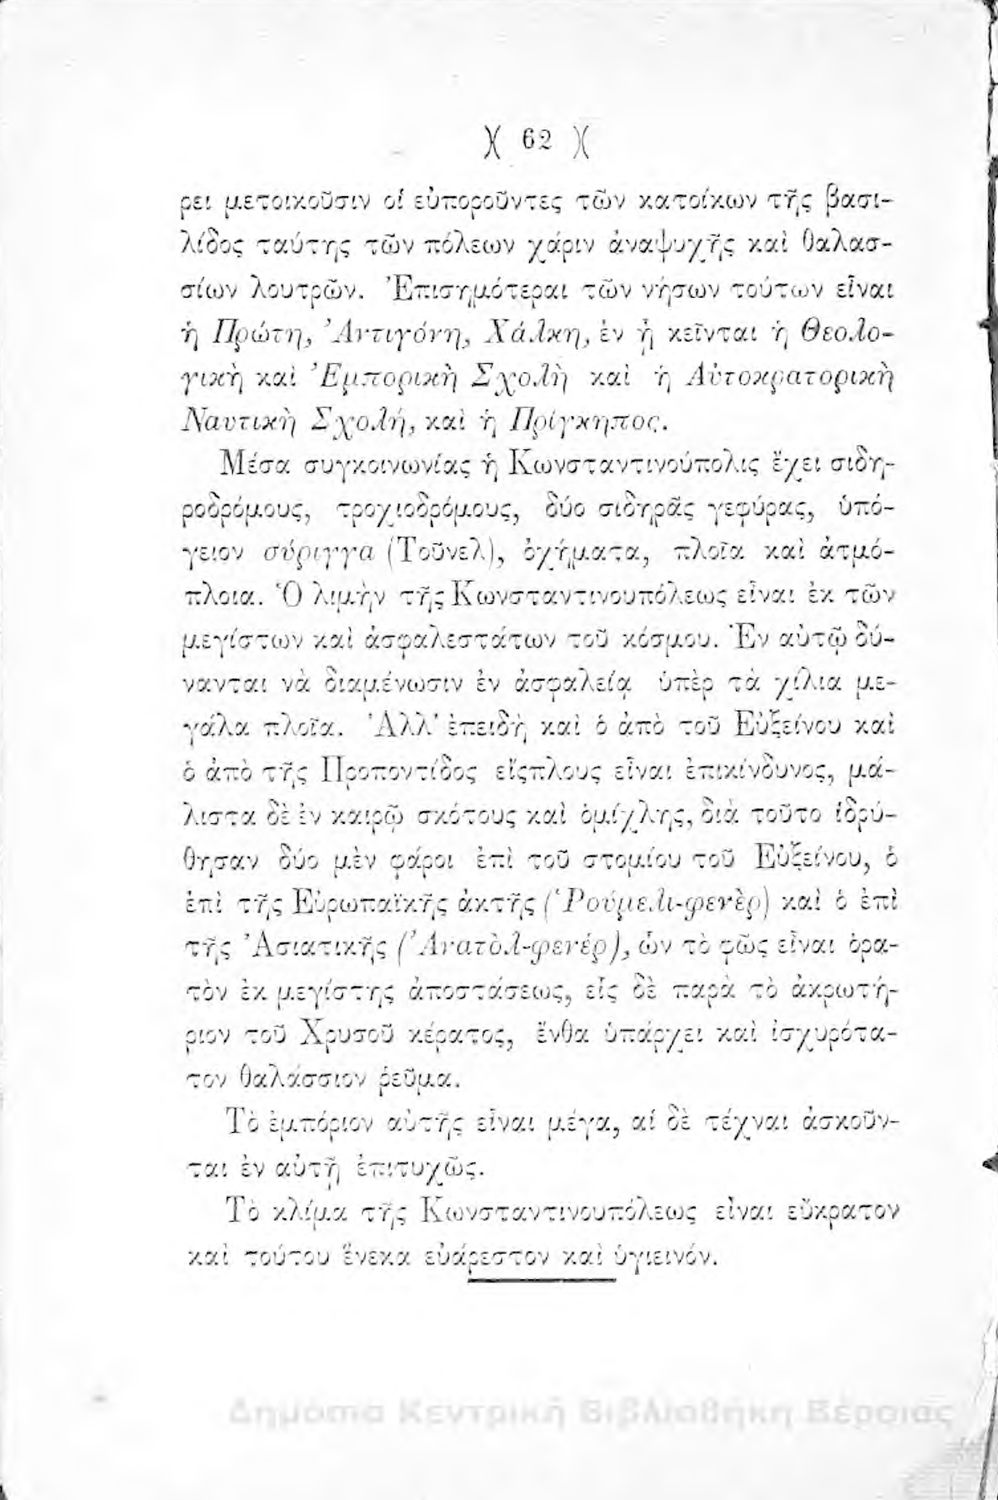 )( 62 )(
ρει μετοικοῦσιν οἱ εὐποροῦντες τῶν κατοίκων τῆς βασι-
λίδος ταύτης τῶν πόλεων χάριν ἀναψυχῆς καὶ θαλασ-
σίων λουτρῶν. Ἐπισημότεραι τῶν νήσων τούτων εἶναι
ἡ Πρώτη, Ἀντιγόνη, Χάλκη, ἐν ᾗ κεῖνται ἡ Θεολο-
γικὴ καὶ Ἐμπορικὴ Σχολὴ καὶ ἡ Αὐτοκρατορικὴ
Ναυτικὴ Σχολή, καὶ ἡ Πρίγκηπος.
Μέσα συγκοινωνίας ἡ Κωνσταντινούπολις ἔχει σιδη-
ροδρόμους, τροχιοδρόμους, δύο σιδηρᾶς γεφύρας, ὑπό-
γειον σύριγγα (Τοῦνελ), ὀχήματα, πλοῖα καὶ ἀτμό-
πλοια. Ὁ λιμὴν τῆς Κωνσταντινουπόλεως εἶναι ἐκ τῶν
μεγίστων καὶ ἀσφαλεστάτων τοῦ κόσμου. Ἐν αὐτῷ δύ-
νανται νὰ διαμένωσιν ἐν ἀσφαλείᾳ ὑπὲρ τὰ χίλια με-
γάλα πλοῖα. Ἀλλ' ἐπειδὴ καὶ ὁ ἀπὸ τοῦ Εὐξείνου καὶ
ὁ ἀπὸ τῆς Προποντίδος εἴςπλους εἶναι ἐπικίνδυνος, μά-
λιστα δὲ ἐν καιρῷ σκότους καὶ ὁμίχλης, διὰ τοῦτο ἱδρύ-
θησαν δύο μὲν φάροι ἐπὶ τοῦ στομίου τοῦ Εὐξείνου, ὁ
ἐπὶ τῆς Εὐρωπαϊκῆς ἀκτῆς (Ῥούμελι-φενὲρ) καὶ ὁ ἐπὶ
τῆς Ἀσιατικῆς (Ἀνατὸλ-φενέρ), ὧν τὸ φῶς εἶναι ὁρα-
τὸν ἐκ μεγίστης ἀποστάσεως, εἷς δὲ παρὰ τὸ ἀκρωτή-
ριον τοῦ Χρυσοῦ κέρατος, ἔνθα ὑπάρχει καὶ ἰσχυρότα-
τον θαλάσσιον ῥεῦμα.
Τὸ ἐμπόριον αὐτῆς εἶναι μέγα, αἱ δὲ τέχναι ἀσκοῦν-
ται ἐν αὐτῇ ἐπιτυχῶς.
Τὸ κλίμα τῆς Κωνσταντινουπόλεως εἶναι εὔκρατον
καὶ τούτου ἕνεκα εὐάρεστον καὶ ὑγιεινόν.
Δημόσια Κεντρική Βιβλιοθήκη Βέροιας